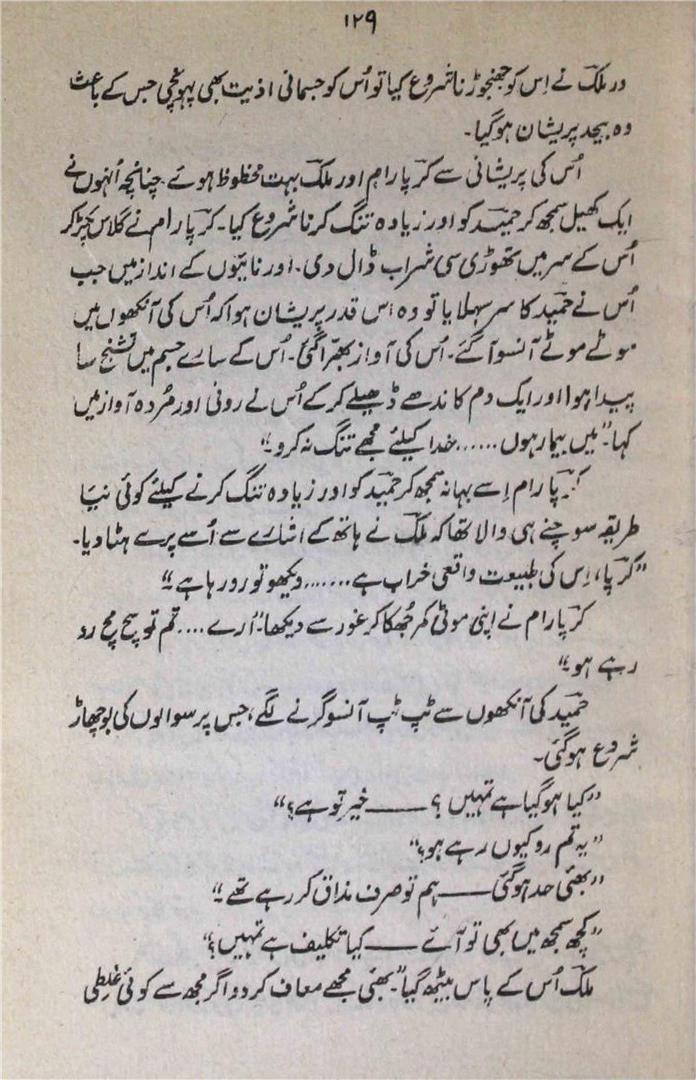 ۱۲۹
در ملک نے اِس کو جھنجوڑنا شروع کیا تو اُس کو جسمانی اذیت بھی پہونچی جس کے باعث
وہ بیحد پریشان ہوگیا۔
اُس کی پریشانی سے کرپا رام اور ملک بہت محظوظ ہوئے۔ چنانچہ اُنہوں نے
ایک کھیل سمجھ کر حمید کو اور زیادہ تنگ کرنا شروع کیا۔ کرپا رام نے گلاس پکڑ کر
اُس کے سر میں تھوڑی سی شراب ڈال دی۔ اور نائیوں کے انداز میں جب
اُس نے حمید کا سر سہلایا تو وہ اس قدر پریشان ہوا کہ اُس کی آنکھوں میں
موٹے موٹے آنسو آگئے۔ اُس کی آواز بھرّا گئی۔ اُس کے سارے جسم میں تشنج سا
پیدا ہوا اور ایک دم کاندھے ڈھیلے کرکے اُس نے رونی اور مُردہ آواز میں
کہا۔ "میں بیمار ہوں ...... خدا کیلئے مجھے تنگ نہ کرو۔"
کرپا رام اِسے بہانہ سمجھ کر حمید کو اور زیادہ تنگ کرنے کیلئے کوئی نیا
طریقہ سوچنے ہی والا تھا کہ ملک نے ہاتھ کے اشارے سے اُسے پرے ہٹا دیا۔
"کرپا، اِس کی طبیعت واقعی خراب ہے ....... دیکھو تو رو رہا ہے۔"
کرپا رام نے اپنی موٹی کمر جُھکا کر غور سے دیکھا۔ "ارے .... تم تو سچ مچ رو
رہے ہو۔"
حمید کی آنکھوں سے ٹپ ٹپ آنسو گرنے لگے، جس پر سوالوں کی بوچھاڑ
شروع ہوگئی۔
"کیا ہوگیا ہے تمہیں؟ ــــــ خیر تو ہے؟"
"یہ تم رو کیوں رہے ہو؟"
"بھئی حد ہوگئی ــــــ ہم تو صرف مذاق کر رہے تھے۔"
"کچھ سمجھ میں بھی تو آئے ــــــ کیا تکلیف ہے تمہیں؟"
ملک اُس کے پاس بیٹھ گیا۔ "بھئی مجھے معاف کر دو اگر مجھ سے کوئی غلطی